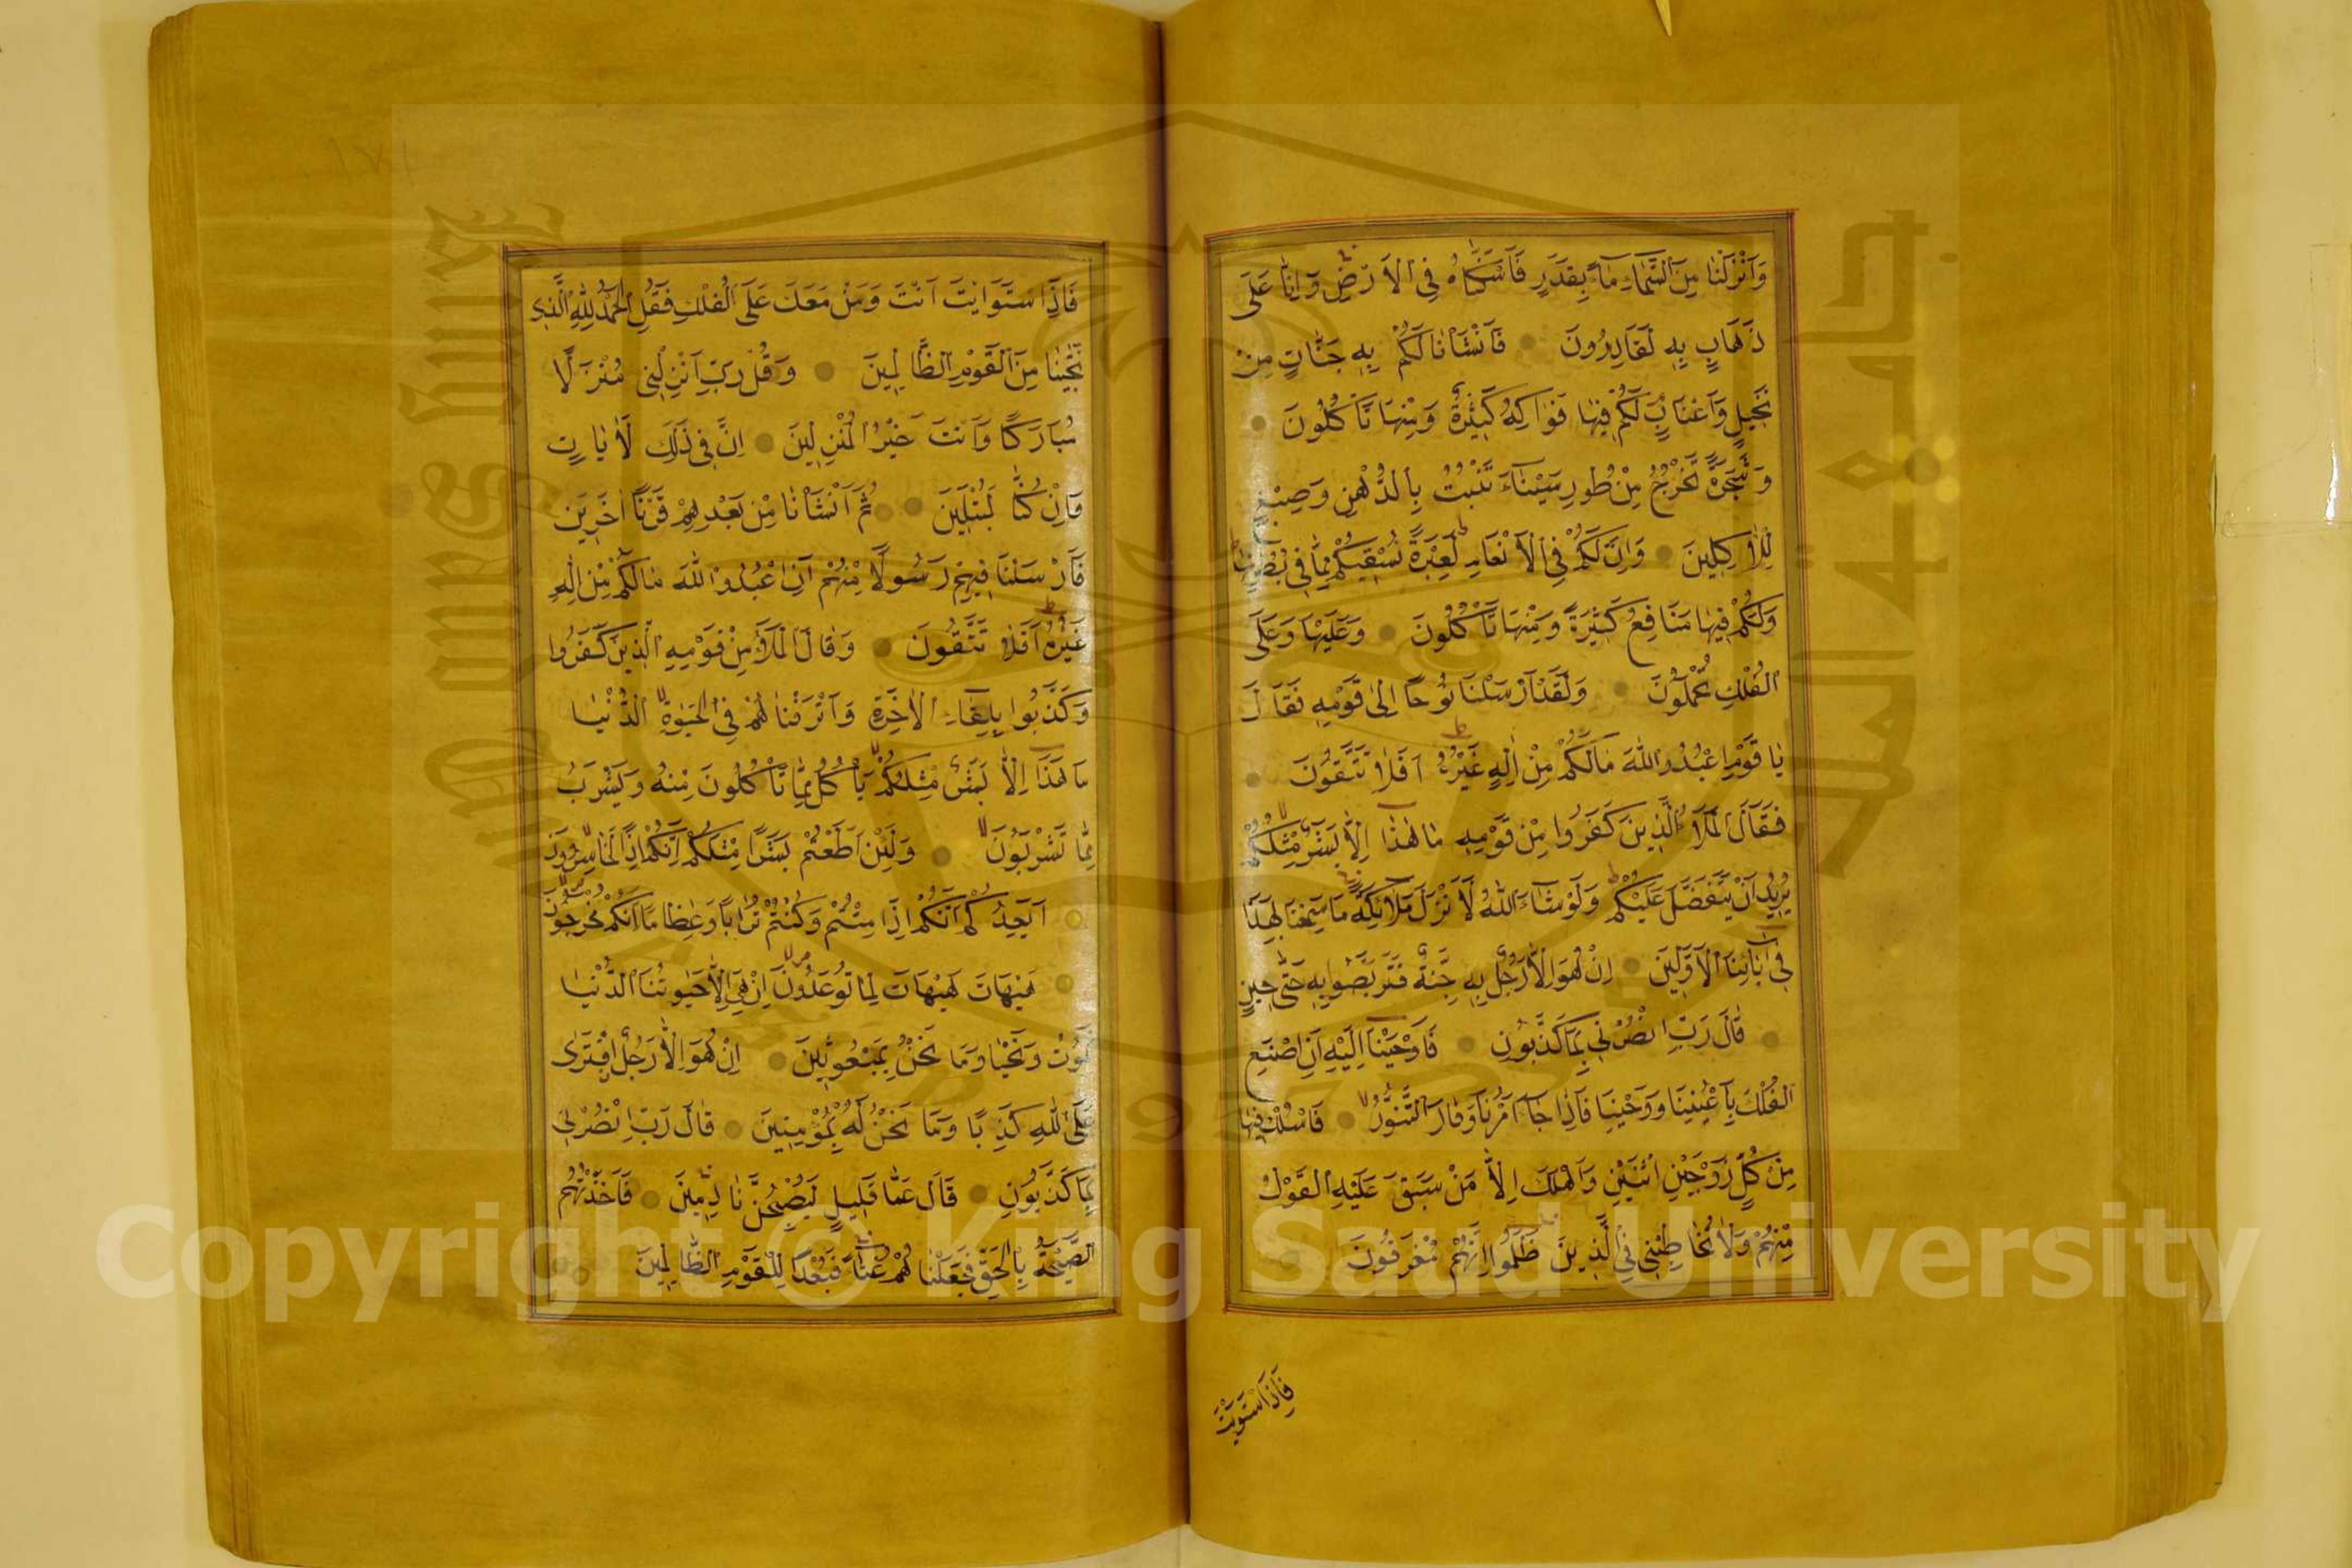 وَاَنْزَلْنَا مِنَ السَّمَاءِ مَاءً بِقَدَرٍ فَاَسْكَنَّاهُ فِي الْاَرْضِ وَاِنَّا عَلٰى
ذَهَابٍ بِهِ لَقَادِرُونَ فَاَنْشَاْنَا لَكُمْ بِهِ جَنَّاتٍ مِنْ
نَخِيلٍ وَاَعْنَابٍ لَكُمْ فِيهَا فَوَاكِهُ كَثِيرَةٌ وَمِنْهَا تَاْكُلُونَ
وَشَجَرَةً تَخْرُجُ مِنْ طُورِ سَيْنَاءَ تَنْبُتُ بِالدُّهْنِ وَصِبْغٍ
لِلْاٰكِلِينَ وَاِنَّ لَكُمْ فِي الْاَنْعَامِ لَعِبْرَةً نُسْقِيكُمْ مِمَّا فِي بُطُونِهَا
وَلَكُمْ فِيهَا مَنَافِعُ كَثِيرَةٌ وَمِنْهَا تَاْكُلُونَ وَعَلَيْهَا وَعَلَى
الْفُلْكِ تُحْمَلُونَ وَلَقَدْ اَرْسَلْنَا نُوحًا اِلٰى قَوْمِهِ فَقَالَ
يَا قَوْمِ اعْبُدُوا اللّٰهَ مَا لَكُمْ مِنْ اِلٰهٍ غَيْرُهُ اَفَلَا تَتَّقُونَ
فَقَالَ الْمَلَاُ الَّذِينَ كَفَرُوا مِنْ قَوْمِهِ مَا هٰذَا اِلَّا بَشَرٌ مِثْلُكُمْ
يُرِيدُ اَنْ يَتَفَضَّلَ عَلَيْكُمْ وَلَوْ شَاءَ اللّٰهُ لَاَنْزَلَ مَلَائِكَةً مَا سَمِعْنَا بِهٰذَا
فِي اٰبَائِنَا الْاَوَّلِينَ اِنْ هُوَ اِلَّا رَجُلٌ بِهِ جِنَّةٌ فَتَرَبَّصُوا بِهِ حَتّٰى حِينٍ
قَالَ رَبِّ انْصُرْنِي بِمَا كَذَّبُونِ فَاَوْحَيْنَا اِلَيْهِ اَنِ اصْنَعِ
الْفُلْكَ بِاَعْيُنِنَا وَوَحْيِنَا فَاِذَا جَاءَ اَمْرُنَا وَفَارَ التَّنُّورُ فَاسْلُكْ فِيهَا
مِنْ كُلٍّ زَوْجَيْنِ اثْنَيْنِ وَاَهْلَكَ اِلَّا مَنْ سَبَقَ عَلَيْهِ الْقَوْلُ
مِنْهُمْ وَلَا تُخَاطِبْنِي فِي الَّذِينَ ظَلَمُوا اِنَّهُمْ مُغْرَقُونَ
فَاِذَا اسْتَوَيْتَ
فَاِذَا اسْتَوَيْتَ اَنْتَ وَمَنْ مَعَكَ عَلَى الْفُلْكِ فَقُلِ الْحَمْدُ لِلّٰهِ الَّذِي
نَجّٰينَا مِنَ الْقَوْمِ الظَّالِمِينَ وَقُلْ رَبِّ اَنْزِلْنِي مُنْزَلًا
مُبَارَكًا وَاَنْتَ خَيْرُ الْمُنْزِلِينَ اِنَّ فِي ذٰلِكَ لَاٰيَاتٍ
وَاِنْ كُنَّا لَمُبْتَلِينَ ثُمَّ اَنْشَاْنَا مِنْ بَعْدِهِمْ قَرْنًا اٰخَرِينَ
فَاَرْسَلْنَا فِيهِمْ رَسُولًا مِنْهُمْ اَنِ اعْبُدُوا اللّٰهَ مَا لَكُمْ مِنْ اِلٰهٍ
غَيْرُهُ اَفَلَا تَتَّقُونَ وَقَالَ الْمَلَاُ مِنْ قَوْمِهِ الَّذِينَ كَفَرُوا
وَكَذَّبُوا بِلِقَاءِ الْاٰخِرَةِ وَاَتْرَفْنَاهُمْ فِي الْحَيٰوةِ الدُّنْيَا
مَا هٰذَا اِلَّا بَشَرٌ مِثْلُكُمْ يَاْكُلُ مِمَّا تَاْكُلُونَ مِنْهُ وَيَشْرَبُ
مِمَّا تَشْرَبُونَ وَلَئِنْ اَطَعْتُمْ بَشَرًا مِثْلَكُمْ اِنَّكُمْ اِذًا لَخَاسِرُونَ
اَيَعِدُكُمْ اَنَّكُمْ اِذَا مِتُّمْ وَكُنْتُمْ تُرَابًا وَعِظَامًا اَنَّكُمْ مُخْرَجُونَ
هَيْهَاتَ هَيْهَاتَ لِمَا تُوعَدُونَ اِنْ هِيَ اِلَّا حَيَوتُنَا الدُّنْيَا
نَمُوتُ وَنَحْيَا وَمَا نَحْنُ بِمَبْعُوثِينَ اِنْ هُوَ اِلَّا رَجُلٌ افْتَرٰى
عَلَى اللّٰهِ كَذِبًا وَمَا نَحْنُ لَهُ بِمُؤْمِنِينَ قَالَ رَبِّ انْصُرْنِي
بِمَا كَذَّبُونِ قَالَ عَمَّا قَلِيلٍ لَيُصْبِحُنَّ نَادِمِينَ فَاَخَذَتْهُمُ
الصَّيْحَةُ بِالْحَقِّ فَجَعَلْنَاهُمْ غُثَاءً فَبُعْدًا لِلْقَوْمِ الظَّالِمِينَ
Copyright © King Saud University